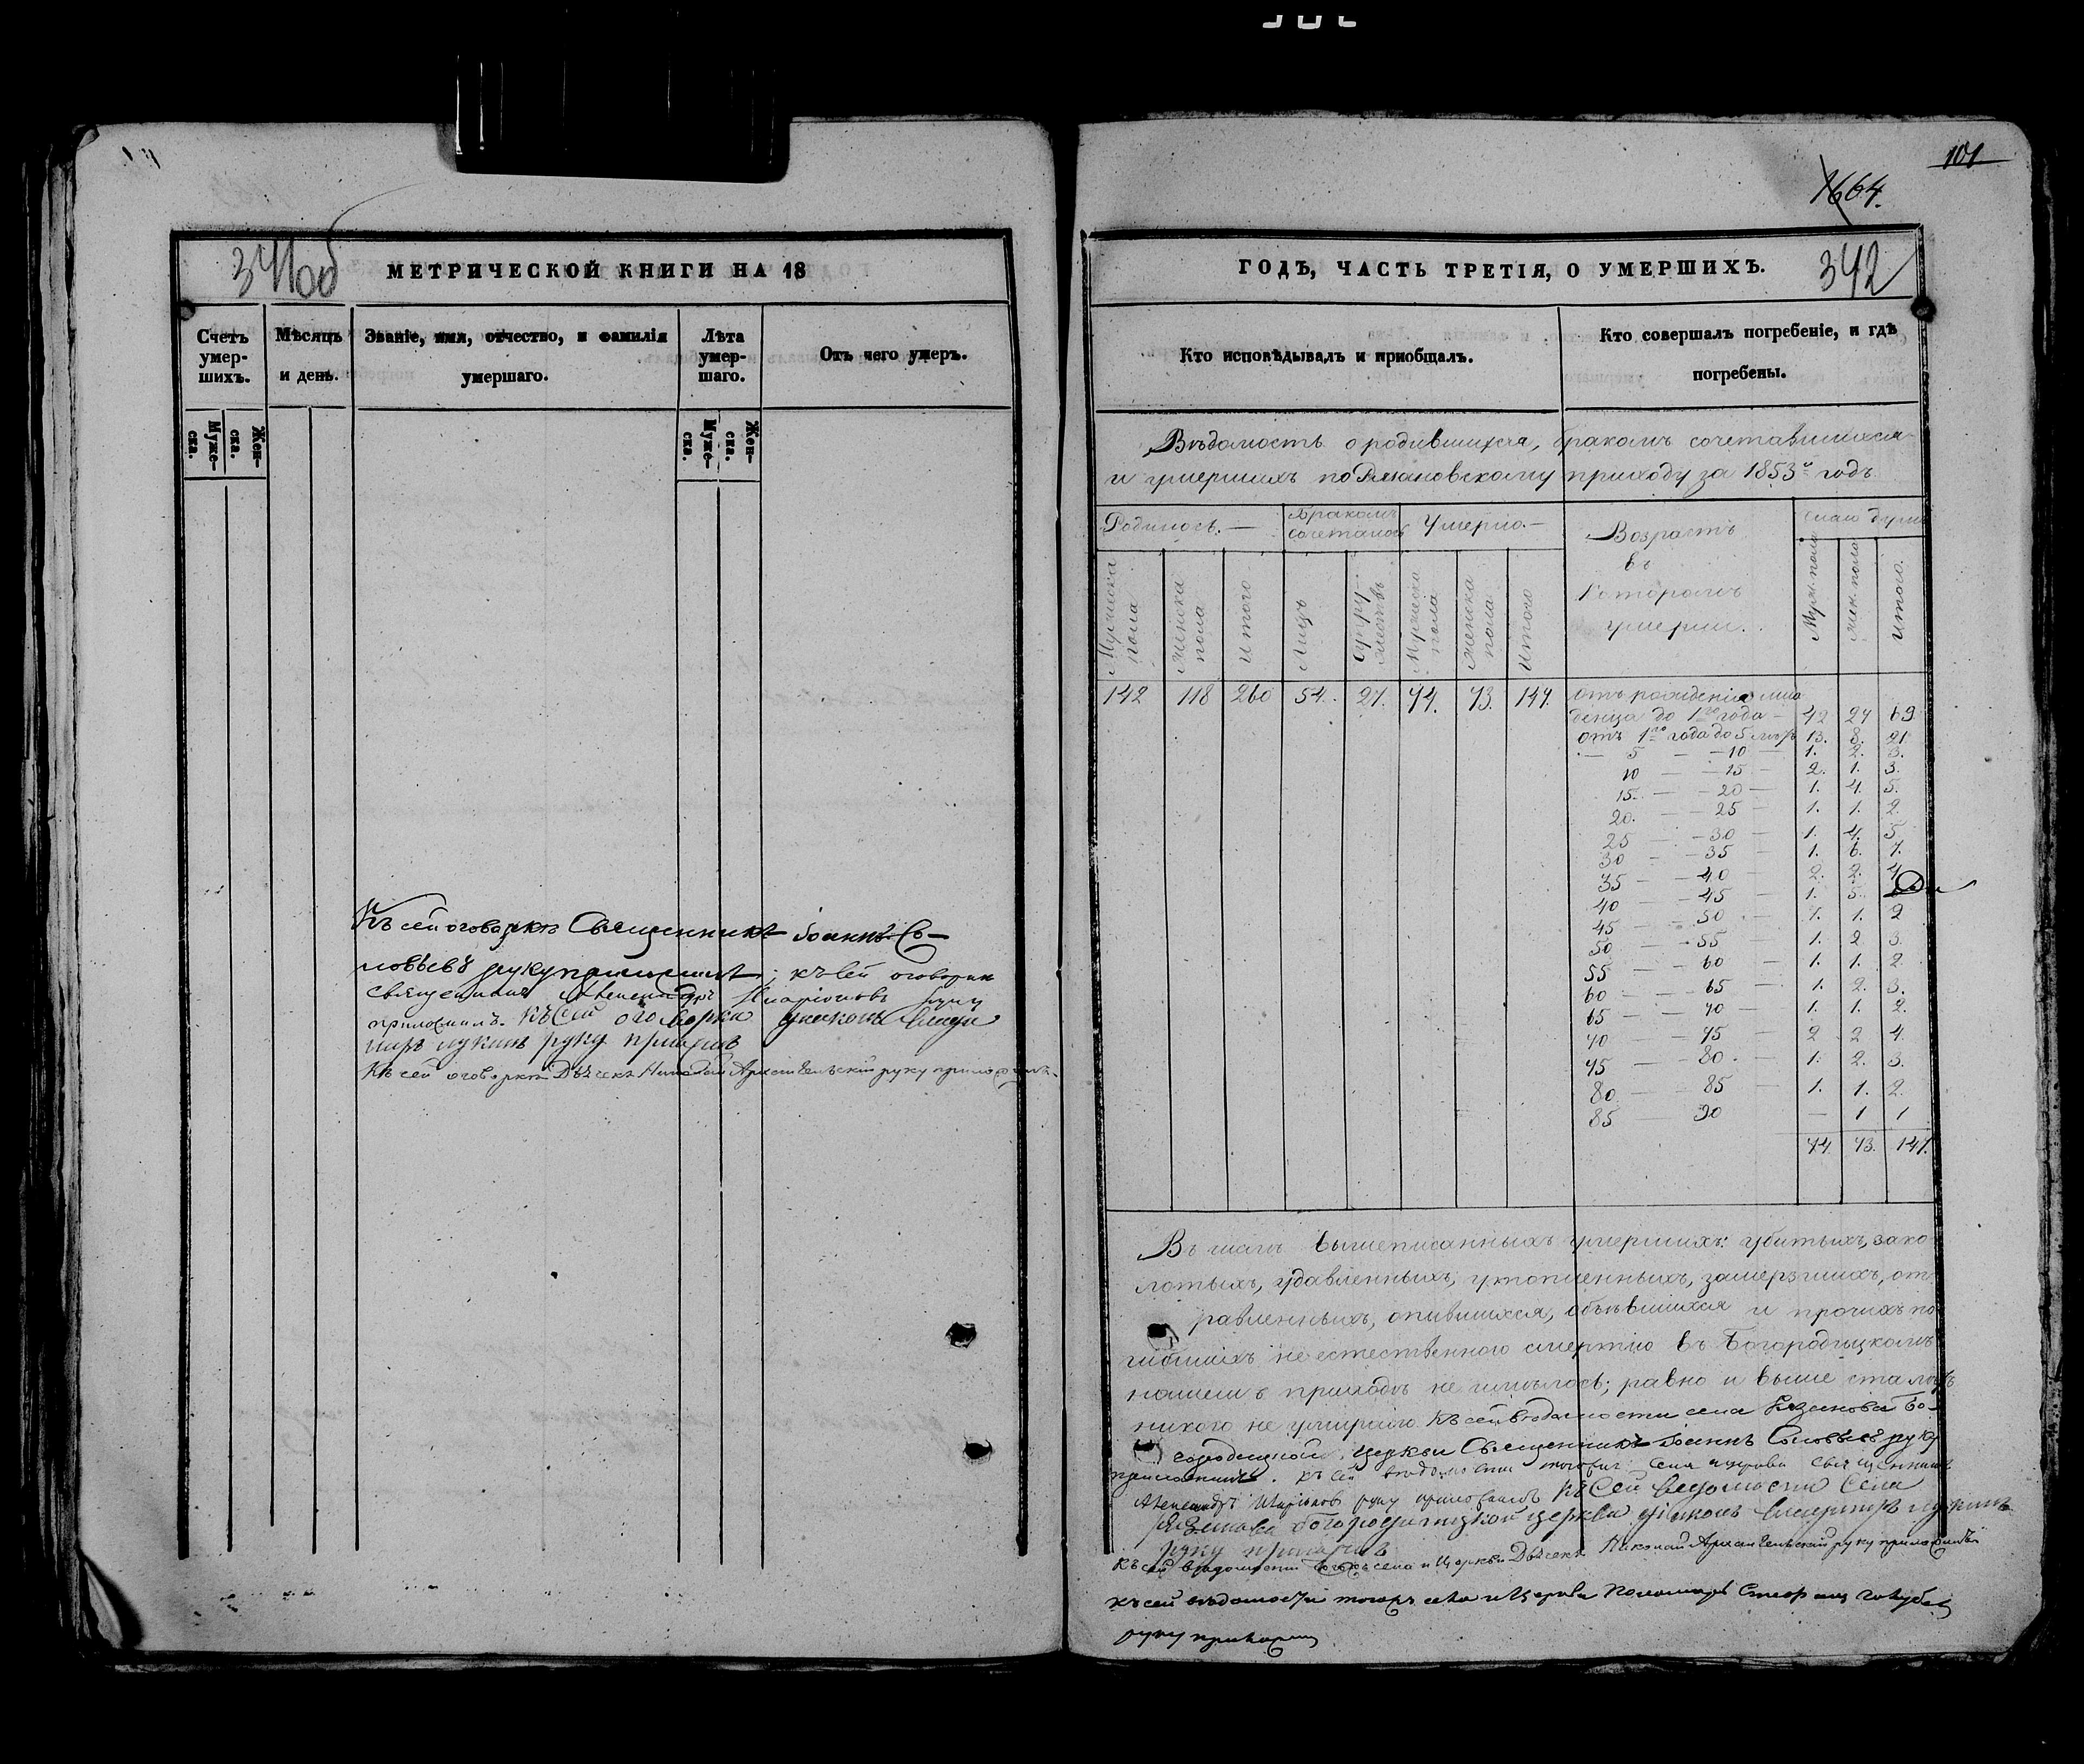 341об
МЕТРИЧЕСКОЙ КНИГИ НА 18
Счетъ умер-шихъ.
Мѣсяцъ и день.
Званіе, имя, отчество, и фамилія умершаго.
Лѣта умер-шаго.
Отъ чего умеръ.
Муже-ска.
Жен-ска.
Муже-ска.
Жен-ска.
Къ сей оговоркѣ Священникъ Іоаннъ Со-
ловьевъ руку приложилъ; къ сей оговорки
священникъ Александръ Иларіоновъ руку
приложилъ. Къ сей оговорки діаконъ Влади
миръ Лукинъ руку приложилъ
Къ сей оговоркѣ Дьячекъ Николай Архангельскій руку приложилъ.
101
664.
ГОДЪ, ЧАСТЬ ТРЕТІЯ, О УМЕРШИХЪ.
342
Кто исповѣдывалъ и пріобщалъ.
Кто совершалъ погребеніе, и гдѣ погребены.
Вѣдомость о родившихся, бракомъ сочетавшихся
и умершихъ по Рязановскому приходу за 1853й годъ.
Родилось.— Бракомъ сочеталось Умерло.— Возрастъ въ которомъ умерли. число душъ
Мужеска пола женска пола итого Лицъ супружествъ Мужеска пола женска пола итого Муж. пола жен. пола итого.
142 118 260 54. 27. 74. 73. 147.
отъ рожденія мла
денца до 1го года — 42 27 69
отъ 1го года до 5 лѣтъ 13. 8. 21.
— 5 — — 10 — 1. 2. 3.
10 — — 15 — 2. 1. 3.
15. — — 20 — 1. 4. 5.
20. — — 25 — 1. 1. 2.
25 — — 30 — 1. 4. 5.
30 — — 35 — 1. 6. 7.
35 — — 40 — 2. 2. 4
40 — — 45 — 1. 5.
45 — — 50 — 1. 1. 2
50 — — 55 — 1. 2 3.
55 — — 60 — 1. 1. 2.
60 — — 65 — 1. 2. 3.
65 — — 70 — 1. 1. 2.
70 — — 75 — 2 2 4.
75 — — 80. — 1. 2. 3.
80 — — 85 — 1. 1. 2.
85 — 90 — 1 1
74. 73. 147.
Въ числѣ вышеписанныхъ умершихъ: убитыхъ, зако
лотыхъ, удавленныхъ, утопленныхъ, замерзшихъ, от
равленныхъ, опившихся, объѣвшихся и прочихъ по
гибшихъ не естественною смертію въ Богородицкомъ
нашемъ приходѣ не имѣлось; равно и выше ста лѣтъ
никого не умирало. Къ сей вѣдомости села Рязанова Бо-
городицкой церкви Священникъ Іоаннъ Соловьевъ руку
приложилъ. къ сей вѣдомости тогожъ села церкви священникъ
Александръ Иларіоновъ руку приложилъ Къ сей ведомости Села
Рязанова богородицкой церкви діаконъ Владимиръ Лукинъ
руку приложилъ
Къ сей вѣдомости тогожъ села и Церкви Дьячекъ Николай Архангельскій руку приложилъ
къ сей вѣдомости тогожъ села и Церкви Пономарь
руку приложилъ